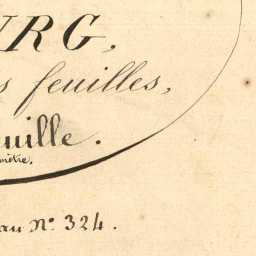 URG,
s feuilles,
euille.
mètre.
au N° 324.